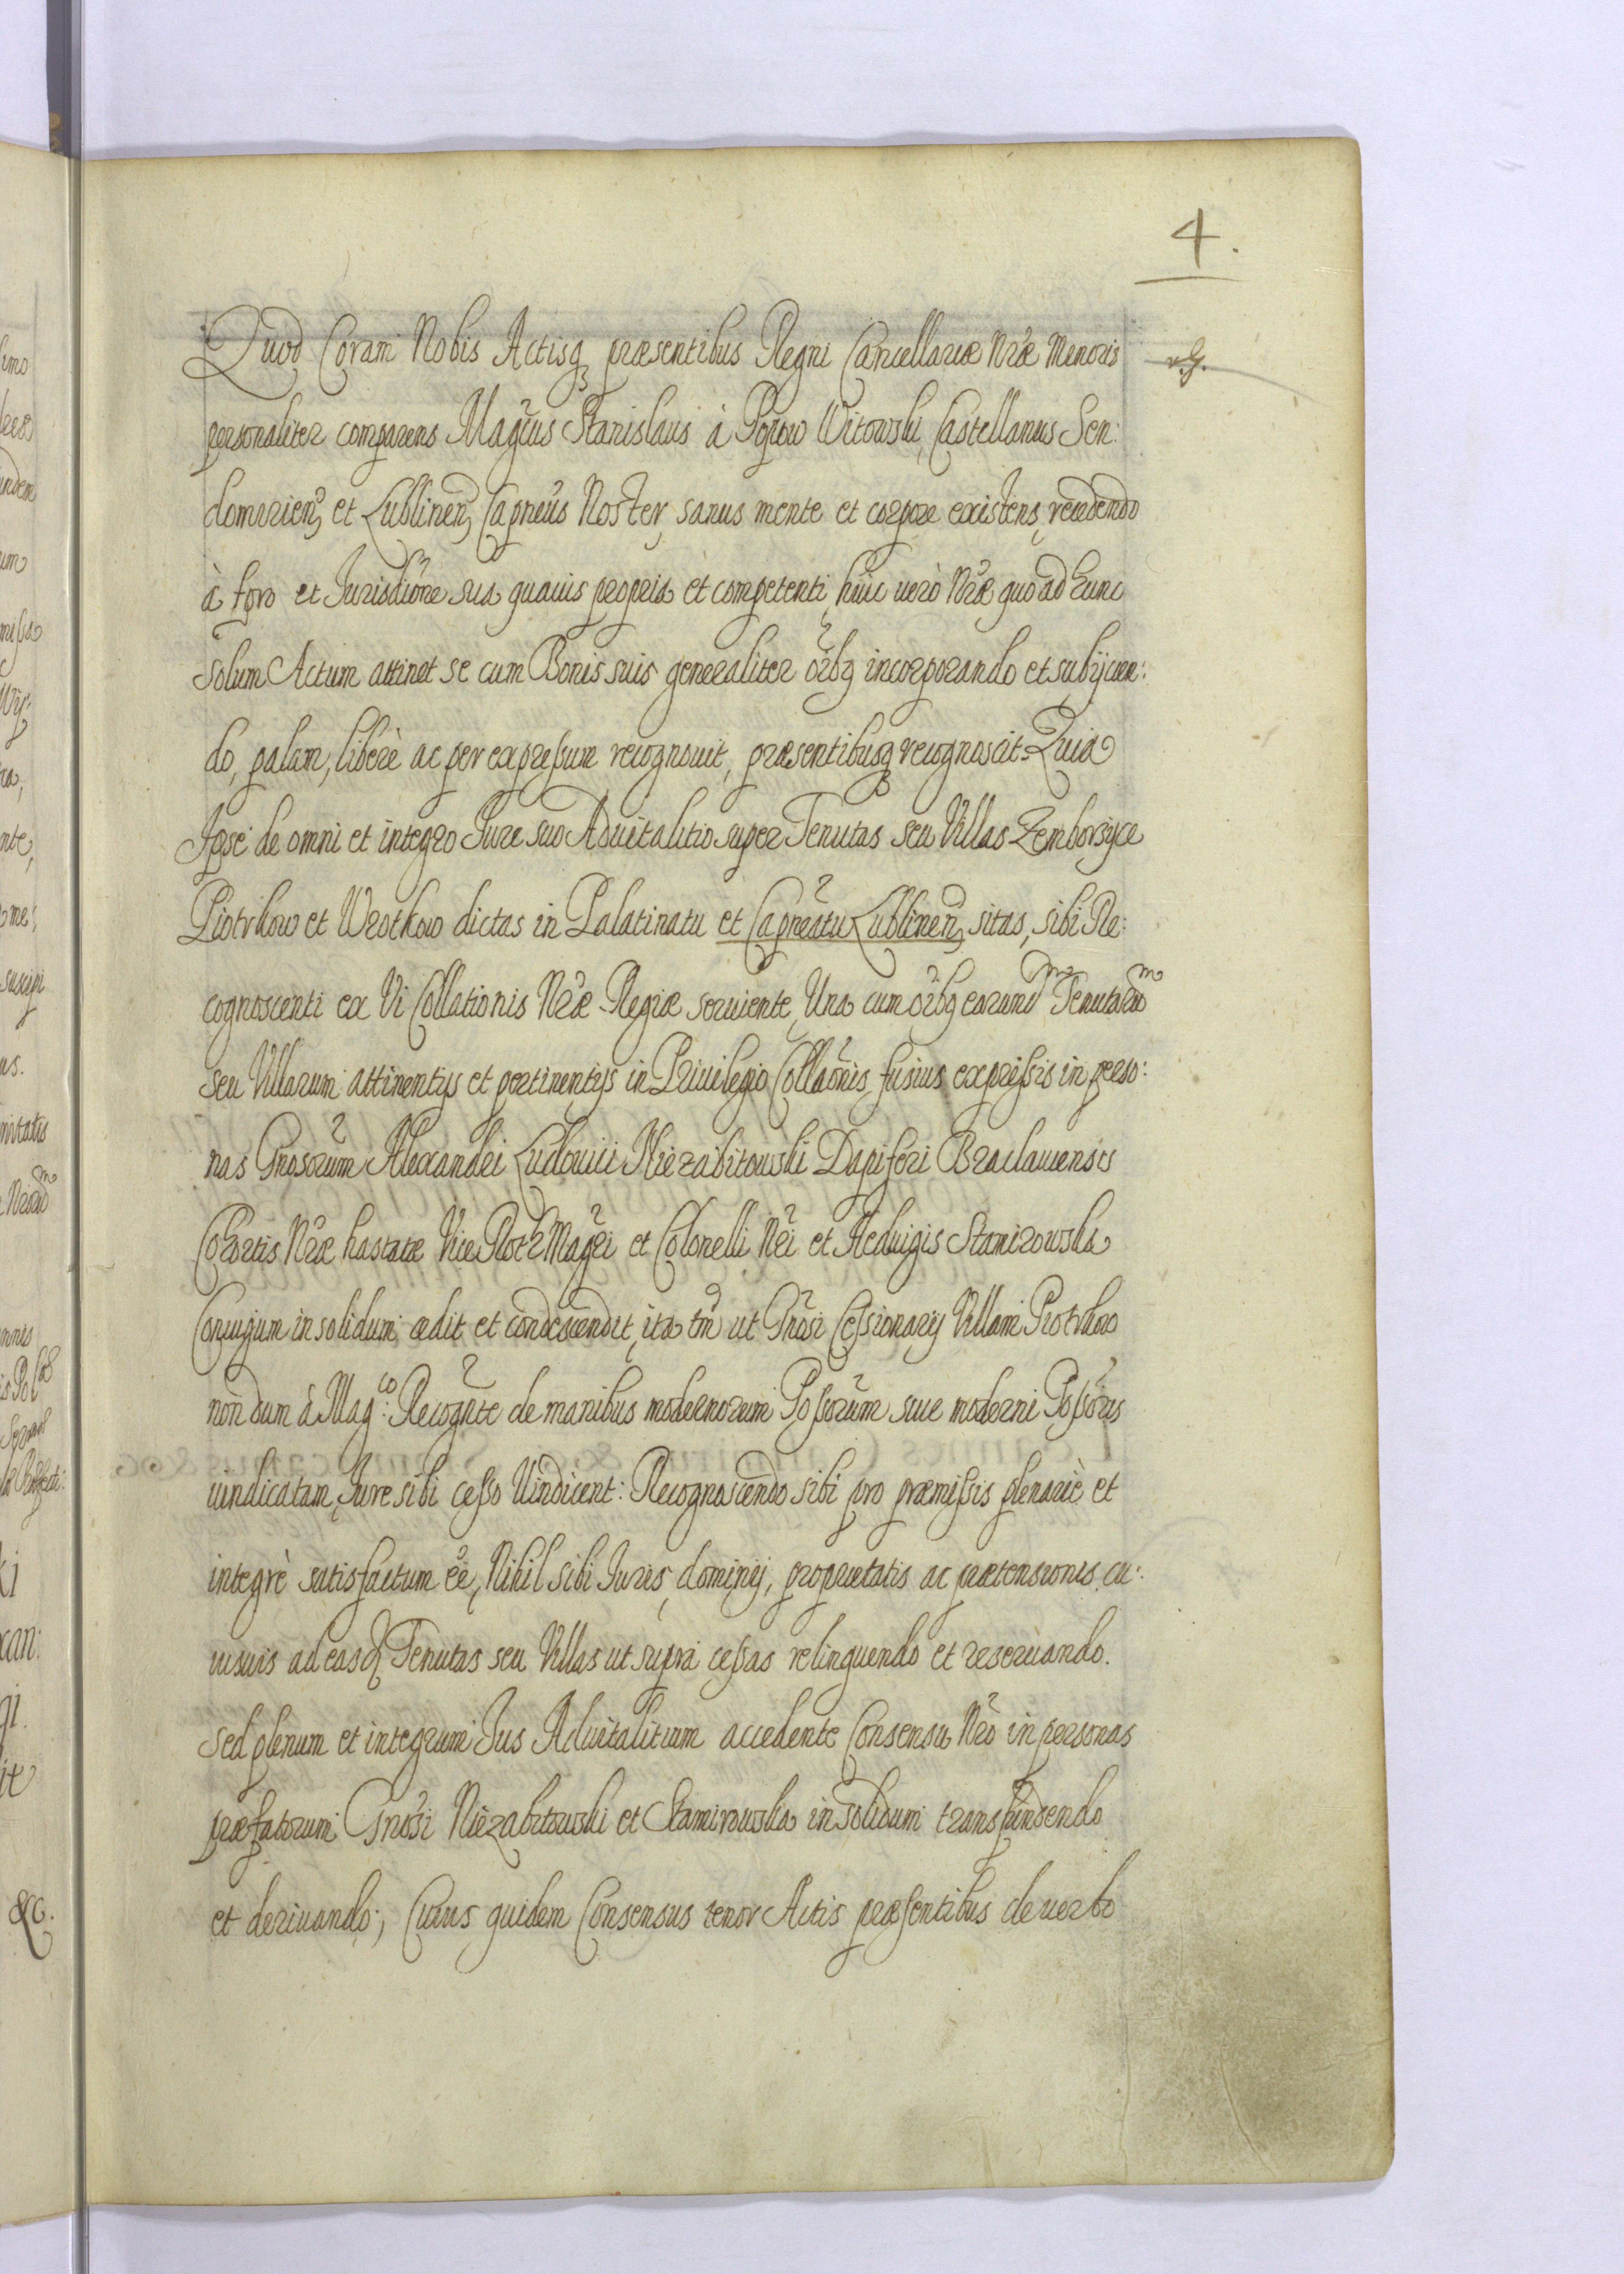 4.
Quod Coram Nobis Actisq₃ præsentibus Regni Cancellariæ Nræ Minoris
personaliter comparens Magcus Stanislaus à Popow Witowski, Castellanus Sen:
domirien₃ et Lublinen₃ Capneus Noster, sanus mente et corpore existens, recedendo
à foro et Jurisdione sua quauis propria et competenti, huic uerò Nræ quo ad hunc
solum Actum attinet se cum Bonis suis generaliter oibq incorporando et subijcien:
do, palam, liberè ac per expressum recognouit, præsentibusq₃ recognoscit. Quia
Ipse de omni et integro Jure suo Aduitalitio super Tenutas seu Villas Zemborzyce
Piotrkow et Wrotkow dictas in Palatinatu et Capneatu Lublinen₃ sitas, sibi Re:
cognoscenti ex Vi Collationis Nræ Regiæ seruiente, Una cum oibq earund Tenutarum
seu Villarum attinentijs et pertinentijs in Priuilegio Collaonis fusius expressis in perso:
nas Gnosorum Alexandri Ludouici Niezabitowski Dapiferi Braclauiensis
Cohortis Nræ hastatæ Vice Roth Magri et Colonelli Nri et Heduigis Stamirowska
Coniugum in solidum cedit et condescendit, ita tm ut Gnosi Cessionarij Villam Piotrkow
non dum à Magco: Recognte de manibus modernorum Possorum siue moderni Possoris
uindicatam, Jure sibi cesso Vindicent: Recognoscendo sibi pro præmissis plenariè et
integrè satisfactum ee, Nihil sibi Juris, dominij, proprietatis ac prætensionis cu:
iusuis ad easd Tenutas seu Villas ut supra cessas relinquendo et reseruando.
Sed plenum et integrum Jus Aduitalitium accedente Consensu Nro in personas
præfatorum Gnosi Niezabitowski et Stamirowska in solidum transfundendo
et deriuando; Cuius quidem Consensus tenor Actis præsentibus de uerbo